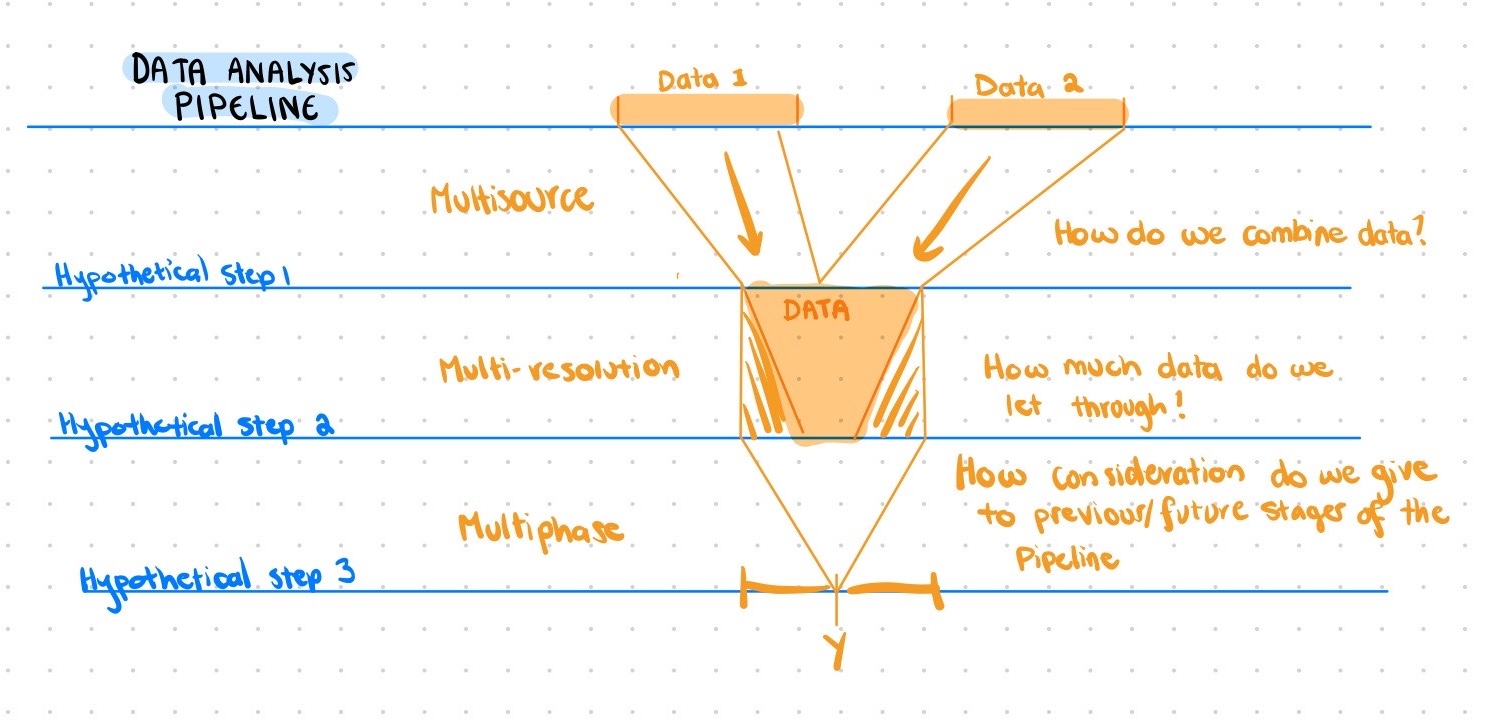 DATA ANALYSIS
PIPELINE
Data 1
Data 2
Multisource
How do we combine data?
Hypothetical step 1
DATA
Multi-resolution
How much data do we
let through?
Hypothetical step 2
How consideration do we give
to previous/future stages of the
Pipeline
Multiphase
Hypothetical step 3
Y